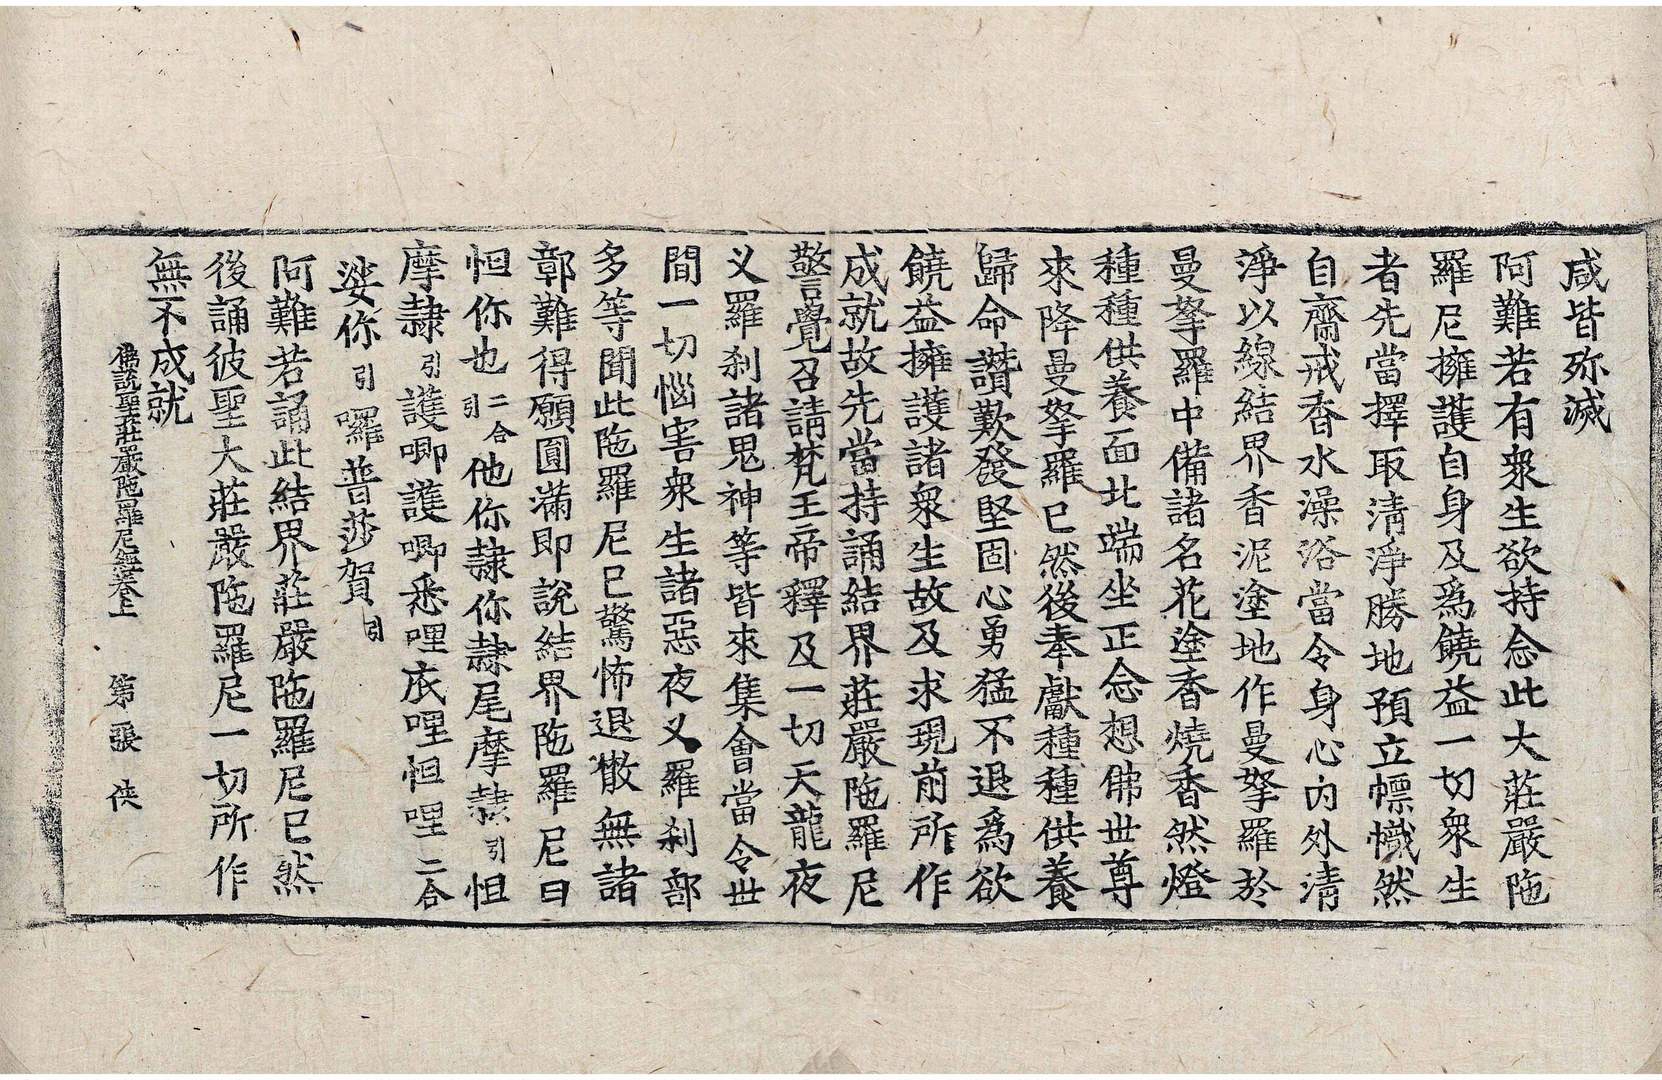 咸皆弥滅
阿難若有衆生欲持念此大莊嚴陁
羅尼擁護自身及爲饒益一切衆生
者先當擇取清淨勝地預立幖幟然
自齋戒香水澡浴當令身心内外清
淨以線結界香泥塗地作曼拏羅於
曼拏羅中備諸名花塗香燒香然燈
種種供養面北端坐正念想佛世尊
來降曼拏羅已然後奉獻種種供養
歸命讚歎發堅固心勇猛不退爲欲
饒益擁護諸衆生故及求現前所作
成就故先當持誦結界莊嚴陁羅尼
警覺召請梵王帝釋及一切天龍夜
义羅刹諸鬼神等皆來集會當令世
間一切惱害衆生諸惡夜义羅刹部
多等聞此陁羅尼已驚怖退散無諸
鄣難得願圓滿即說結界陁羅尼曰
怛你也二合引他你隷你隷尾摩隷引怛
摩隷引護唧護唧悉哩底哩怛哩二合
娑你引囉普莎賀引
阿難若誦此結界莊嚴陁羅尼已然
後誦彼聖大莊嚴陁羅尼一切所作
無不成就
佛說聖莊嚴陁羅尼經卷上 第 張 俠